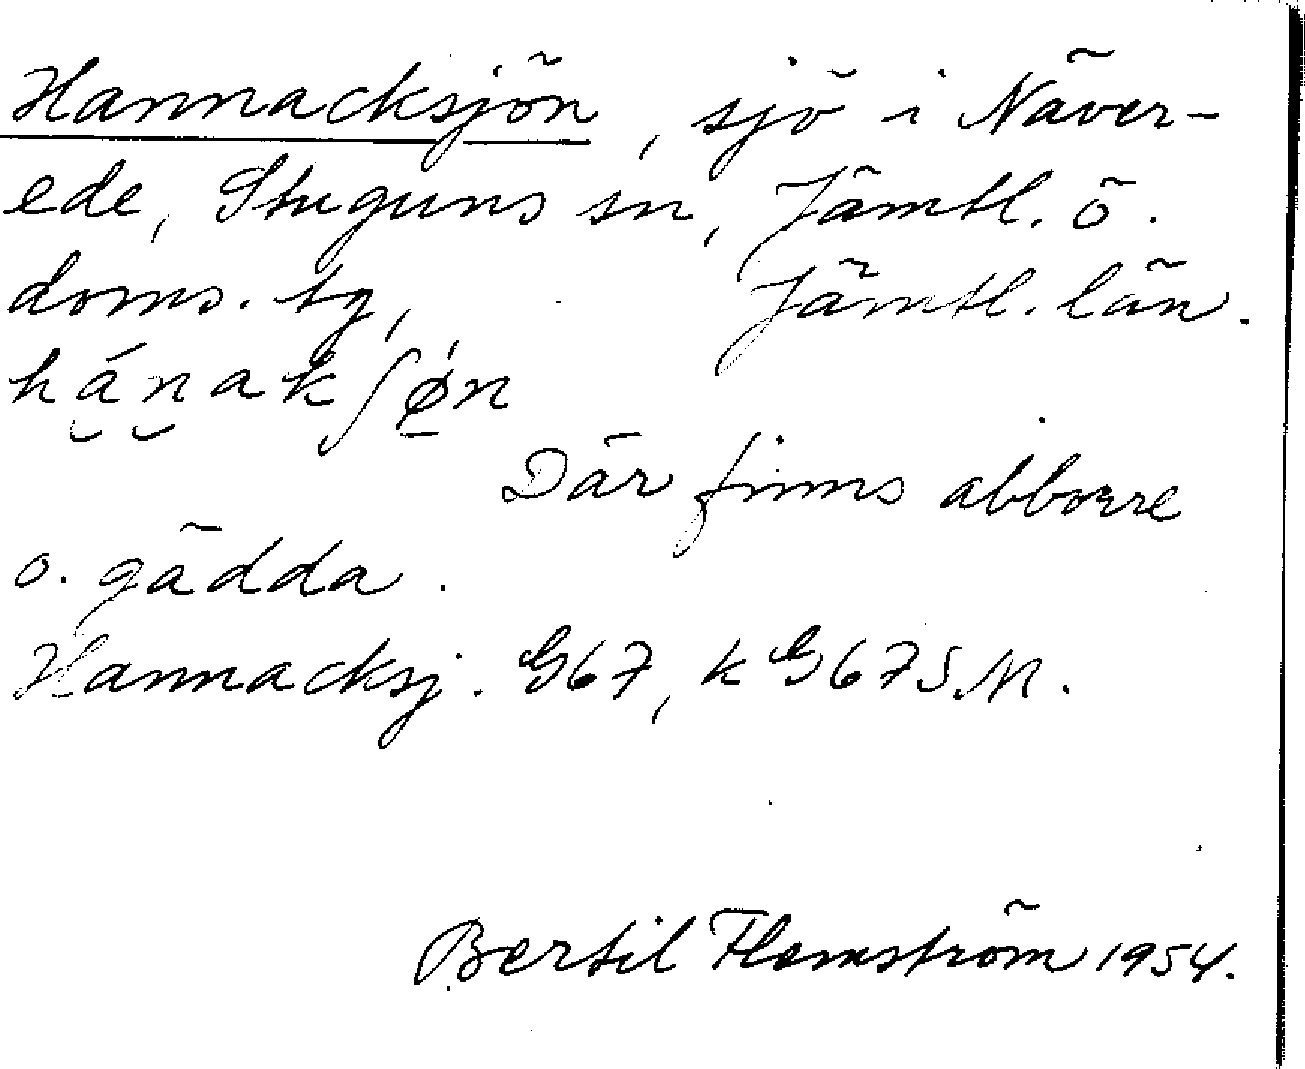 Hannacksjön, sjö i Näver-
ede, Stuguns sn, Jämtl. ö.
doms. tg, Jämtl. län.
hánakʃǿn
Där finns abborre
o. gädda.
Hannacksj. G67, k G67 S.M.
Bertil Flemström 1954.